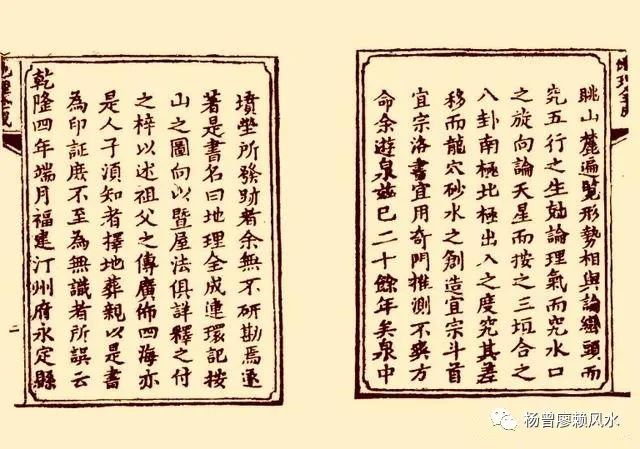 眺山麓遍覽形勢相與論巒頭而
究五行之生尅論理氣而究水口
之旋向論天星而按之三垣合之
八卦南極北極出入之度究其差
移而龍穴砂水之創造宜宗斗首
宜宗洛書宜用奇門推測不爽方
命余遊泉茲已二十餘年矣泉中
墳塋所發跡者余無不研勘焉遂
著是書名曰地理全成連環記按
山之圖向以暨屋法俱詳釋之付
之梓以述祖父之傳廣佈四海亦
是人子須知者擇地葬親以是書
為印証庶不至為無識者所誤云
乾隆四年端月福建汀州府永定縣
二
杨曾廖赖风水